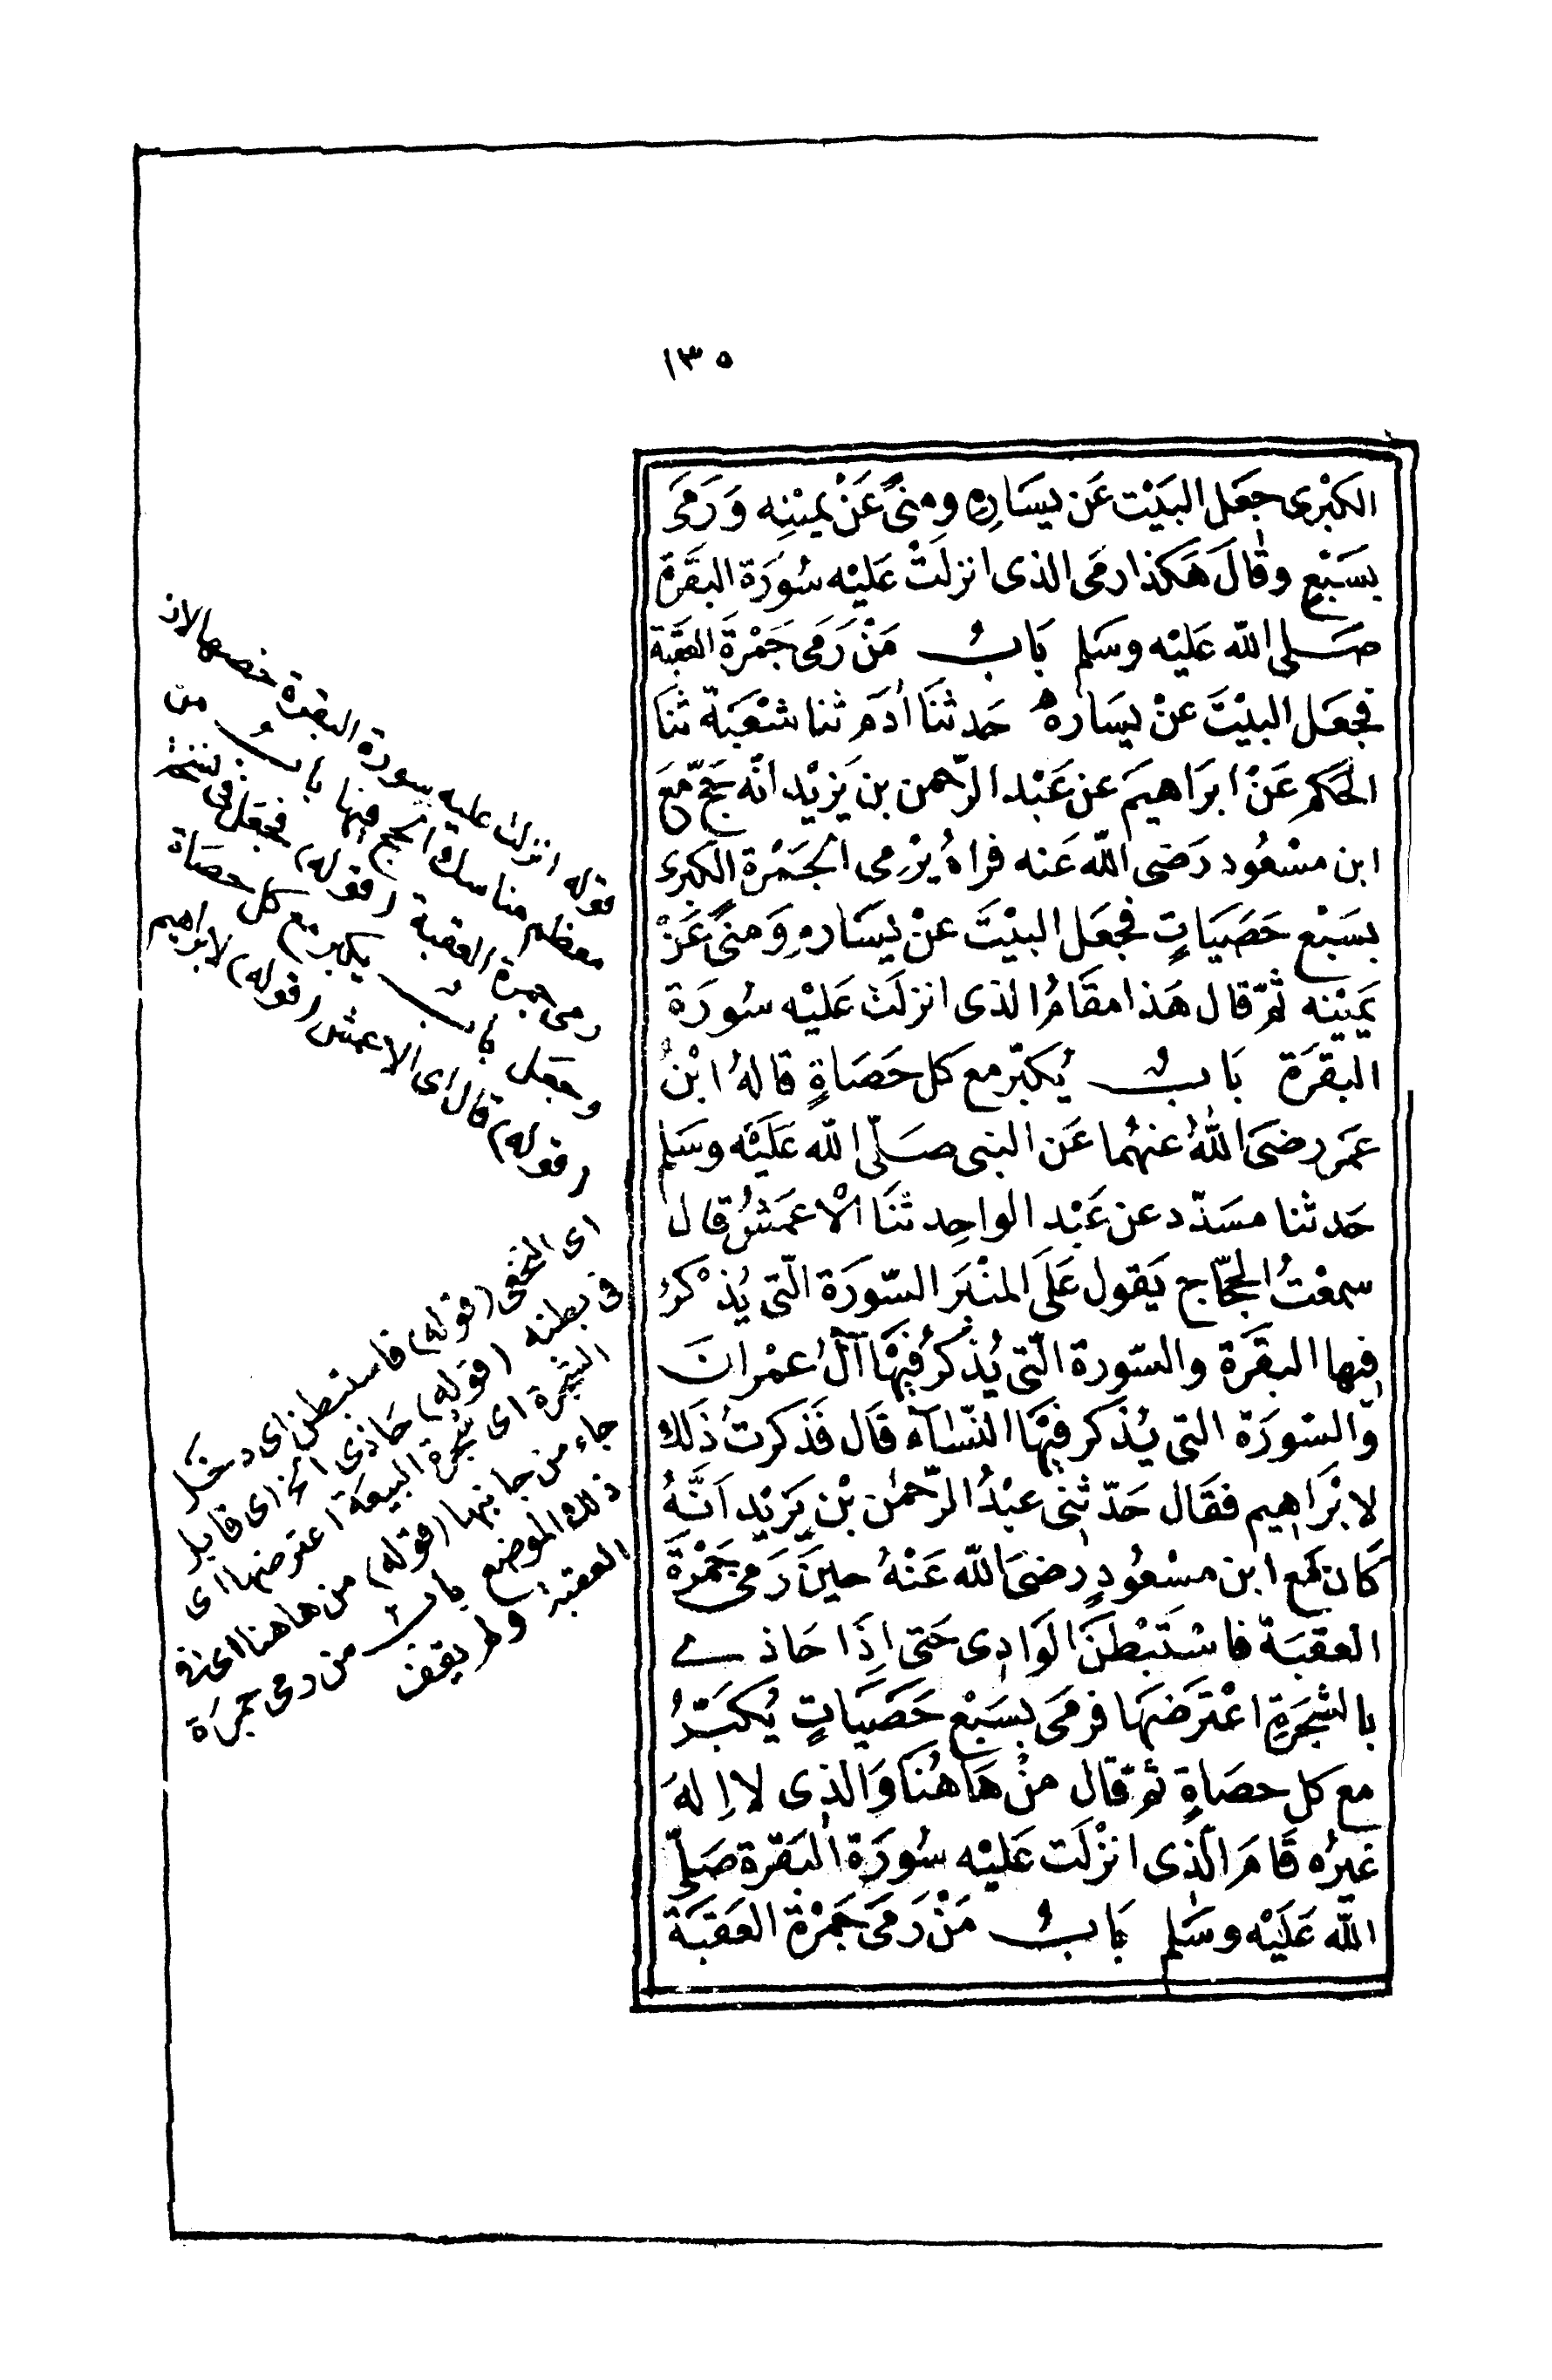 ١٣٥
الكبْرى جعَل البَيْت عَن يسَارِه ومنىً عَنْ يمِيْنِه وَرَمَى
بسَبْعٍ وقَالَ هَكذا رمَى الذى انزلَتْ عَليْه سُورَة البقَرة
صَلى اللّه عَليْه وسَلم بَابُ مَنْ رَمَى جَمْرَةَ العقَبة
فجعَل البيْتَ عنْ يسَاره حَدثنَا آدَم ثنا شعْبَة ثنَا
الحَكم عَنْ ابرَاهيمَ عن عَبْد الرّحمن بن يَزيْد انّه حَجّ معَ
ابن مسْعُود رَضى اللّه عَنه فراهُ يرْمى الجَمْرة الكبرى
بسَبْع حَصَيَاتٍ فجعَل البيْتَ عنْ يسَاره وَمنىً عَنْ
يَميْنِه ثمّ قال هَذا مقَامُ الذى انزلَتْ عَليْه سُورَة
البقرَة بَابُ يُكبّر مع كل حَصَاةٍ قالهُ ابْنُ
عمَر رضىَ اللّٰهُ عنهُما عَن النبى صَلّى اللّه عَليْه وسَلم
حَدثنا مسَدّد عن عَبْد الواحِد ثنَا الْاعمَشُ قال
سمعْتُ الحجّاج يَقول عَلَى المنْبَر السّورَة الّتى يُذْكرُ
فيها البقَرة والسّورة الّتى يُذكَرُ فيْهَا آلُ عمْرانَ
وَالسّورَة التى يُذكَر فيْهَا النّسَآء قَال فَذكرتُ ذَلك
لابْرَاهِيم فقَال حَدّثنِى عبْدُ الرّحمٰن بْن يَزيْد اَنّهُ
كَان مَع ابن مسْعُودٍ رضىَ اللّه عَنْهُ حينَ رَمى جَمْرَةَ
العقبَة فاسْتَبْطنَ الوَادِى حَتى اِذَا حَاذى
بالشجَرَةِ اعْتَرَضهَا فرمَى بسَبْع حَصَيَاتٍ يُكبّرُ
مع كل حصَاةٍ ثمّ قال منْ هَاهُنَا وَالذى لا اِلهَ
غيرُه قَامَ الّذى انْزلَت عَليْه سُورَة البَقرة صَلّى
اللّه عَلَيْه وسَلم بَابُ مَنْ رَمَى جَمْرَة العَقبَة
قوله انزلت عليه سورة البقرة خصها لان
معظم مناسك الحج فيها بابُ من
رمى جمرة العقبة (قوله) فجعل فى نسخة
وجعل باب يكبر مع كل حصاة
(قوله) قال اى الاعمش (قوله) لابراهيم
اى النخعى (قوله) فاستبطن اى دخل
فى بطنه (قوله) حاذى الخ اى قابل
الشجرة اى شجرة البيعة اعترضها اى
جاء من جانبها (قوله) من هاهنا اى من
ذلك الموضع باب من رمى جمرة
العقبة ولم يقف